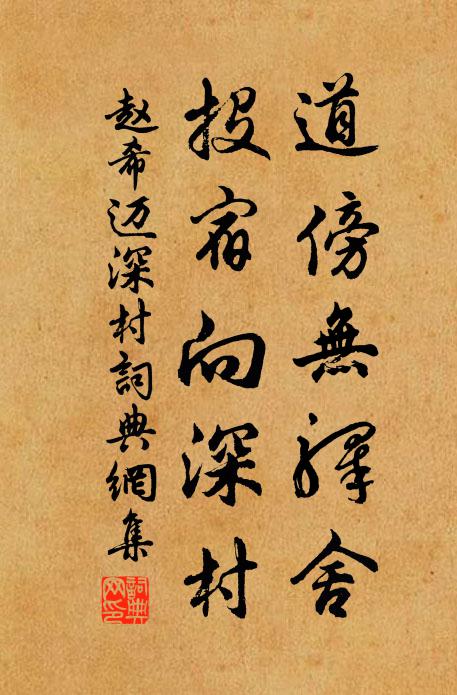 道傍無驛舍
投宿向深村
赵希迈深村詞典網集
詞典网印